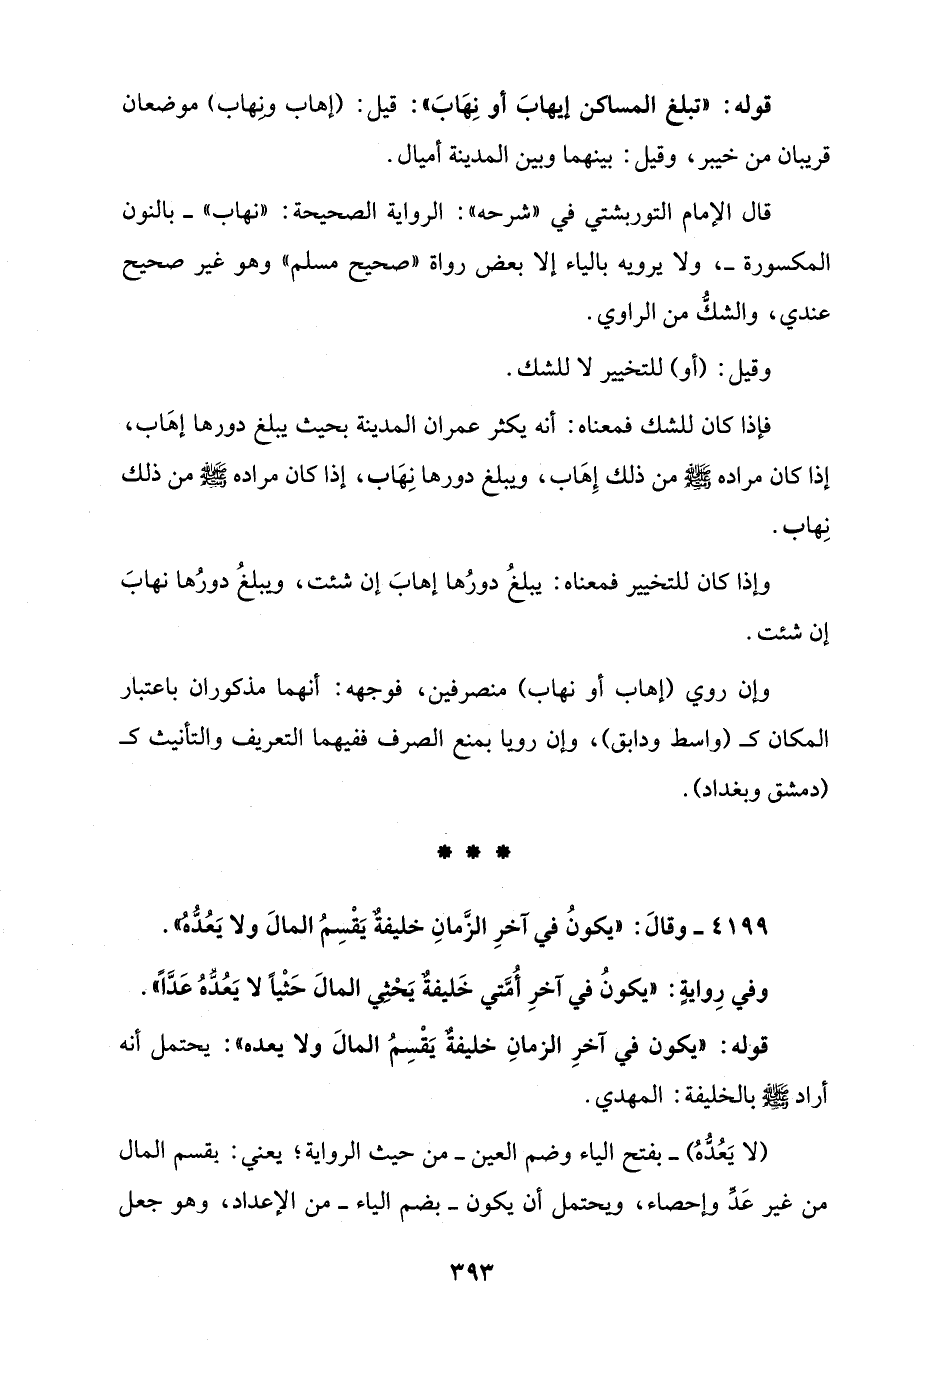 قوله: «تبلغ المساكن إيهابَ أو نِهَابَ»: قيل: (إهاب ونِهاب) موضعان
قريبان من خيبر، وقيل: بينهما وبين المدينة أميال.
قال الإمام التوربشتي في «شرحه»: الرواية الصحيحة: «نهاب» ـ بالنون
المكسورة ـ، ولا يرويه بالياء إلا بعض رواة «صحيح مسلم» وهو غير صحيح
عندي، والشكُّ من الراوي.
وقيل: (أو) للتخيير لا للشك.
فإذا كان للشك فمعناه: أنه يكثر عمران المدينة بحيث يبلغ دورها إهَاب،
إذا كان مراده ﷺ من ذلك إِهَاب، ويبلغ دورها نِهَاب، إذا كان مراده ﷺ من ذلك
نِهاب.
وإذا كان للتخيير فمعناه: يبلغُ دورُها إهابَ إن شئت، ويبلغُ دورُها نهابَ
إن شئت.
وإن روي (إهاب أو نهاب) منصرفين، فوجهه: أنهما مذكوران باعتبار
المكان كـ (واسط ودابق)، وإن رويا بمنع الصرف ففيهما التعريف والتأنيث كـ
(دمشق وبغداد).
* * *
٤١٩٩ ـ وقالَ: «يكونُ في آخرِ الزَّمانِ خليفةٌ يَقْسِمُ المالَ ولا يَعُدُّهُ».
وفي رِوايةٍ: «يكونُ في آخرِ أُمَّتي خَليفةٌ يَحْثِي المالَ حَثْياً لا يَعُدُّهُ عَدَّاً».
قوله: «يكون في آخرِ الزمانِ خليفةٌ يَقْسِمُ المالَ ولا يعده»: يحتمل أنه
أراد ﷺ بالخليفة: المهدي.
(لا يَعُدُّهُ) ـ بفتح الياء وضم العين ـ من حيث الرواية؛ يعني: يقسم المال
من غير عَدٍّ وإحصاء، ويحتمل أن يكون ـ بضم الياء ـ من الإعداد، وهو جعل
٣٩٣